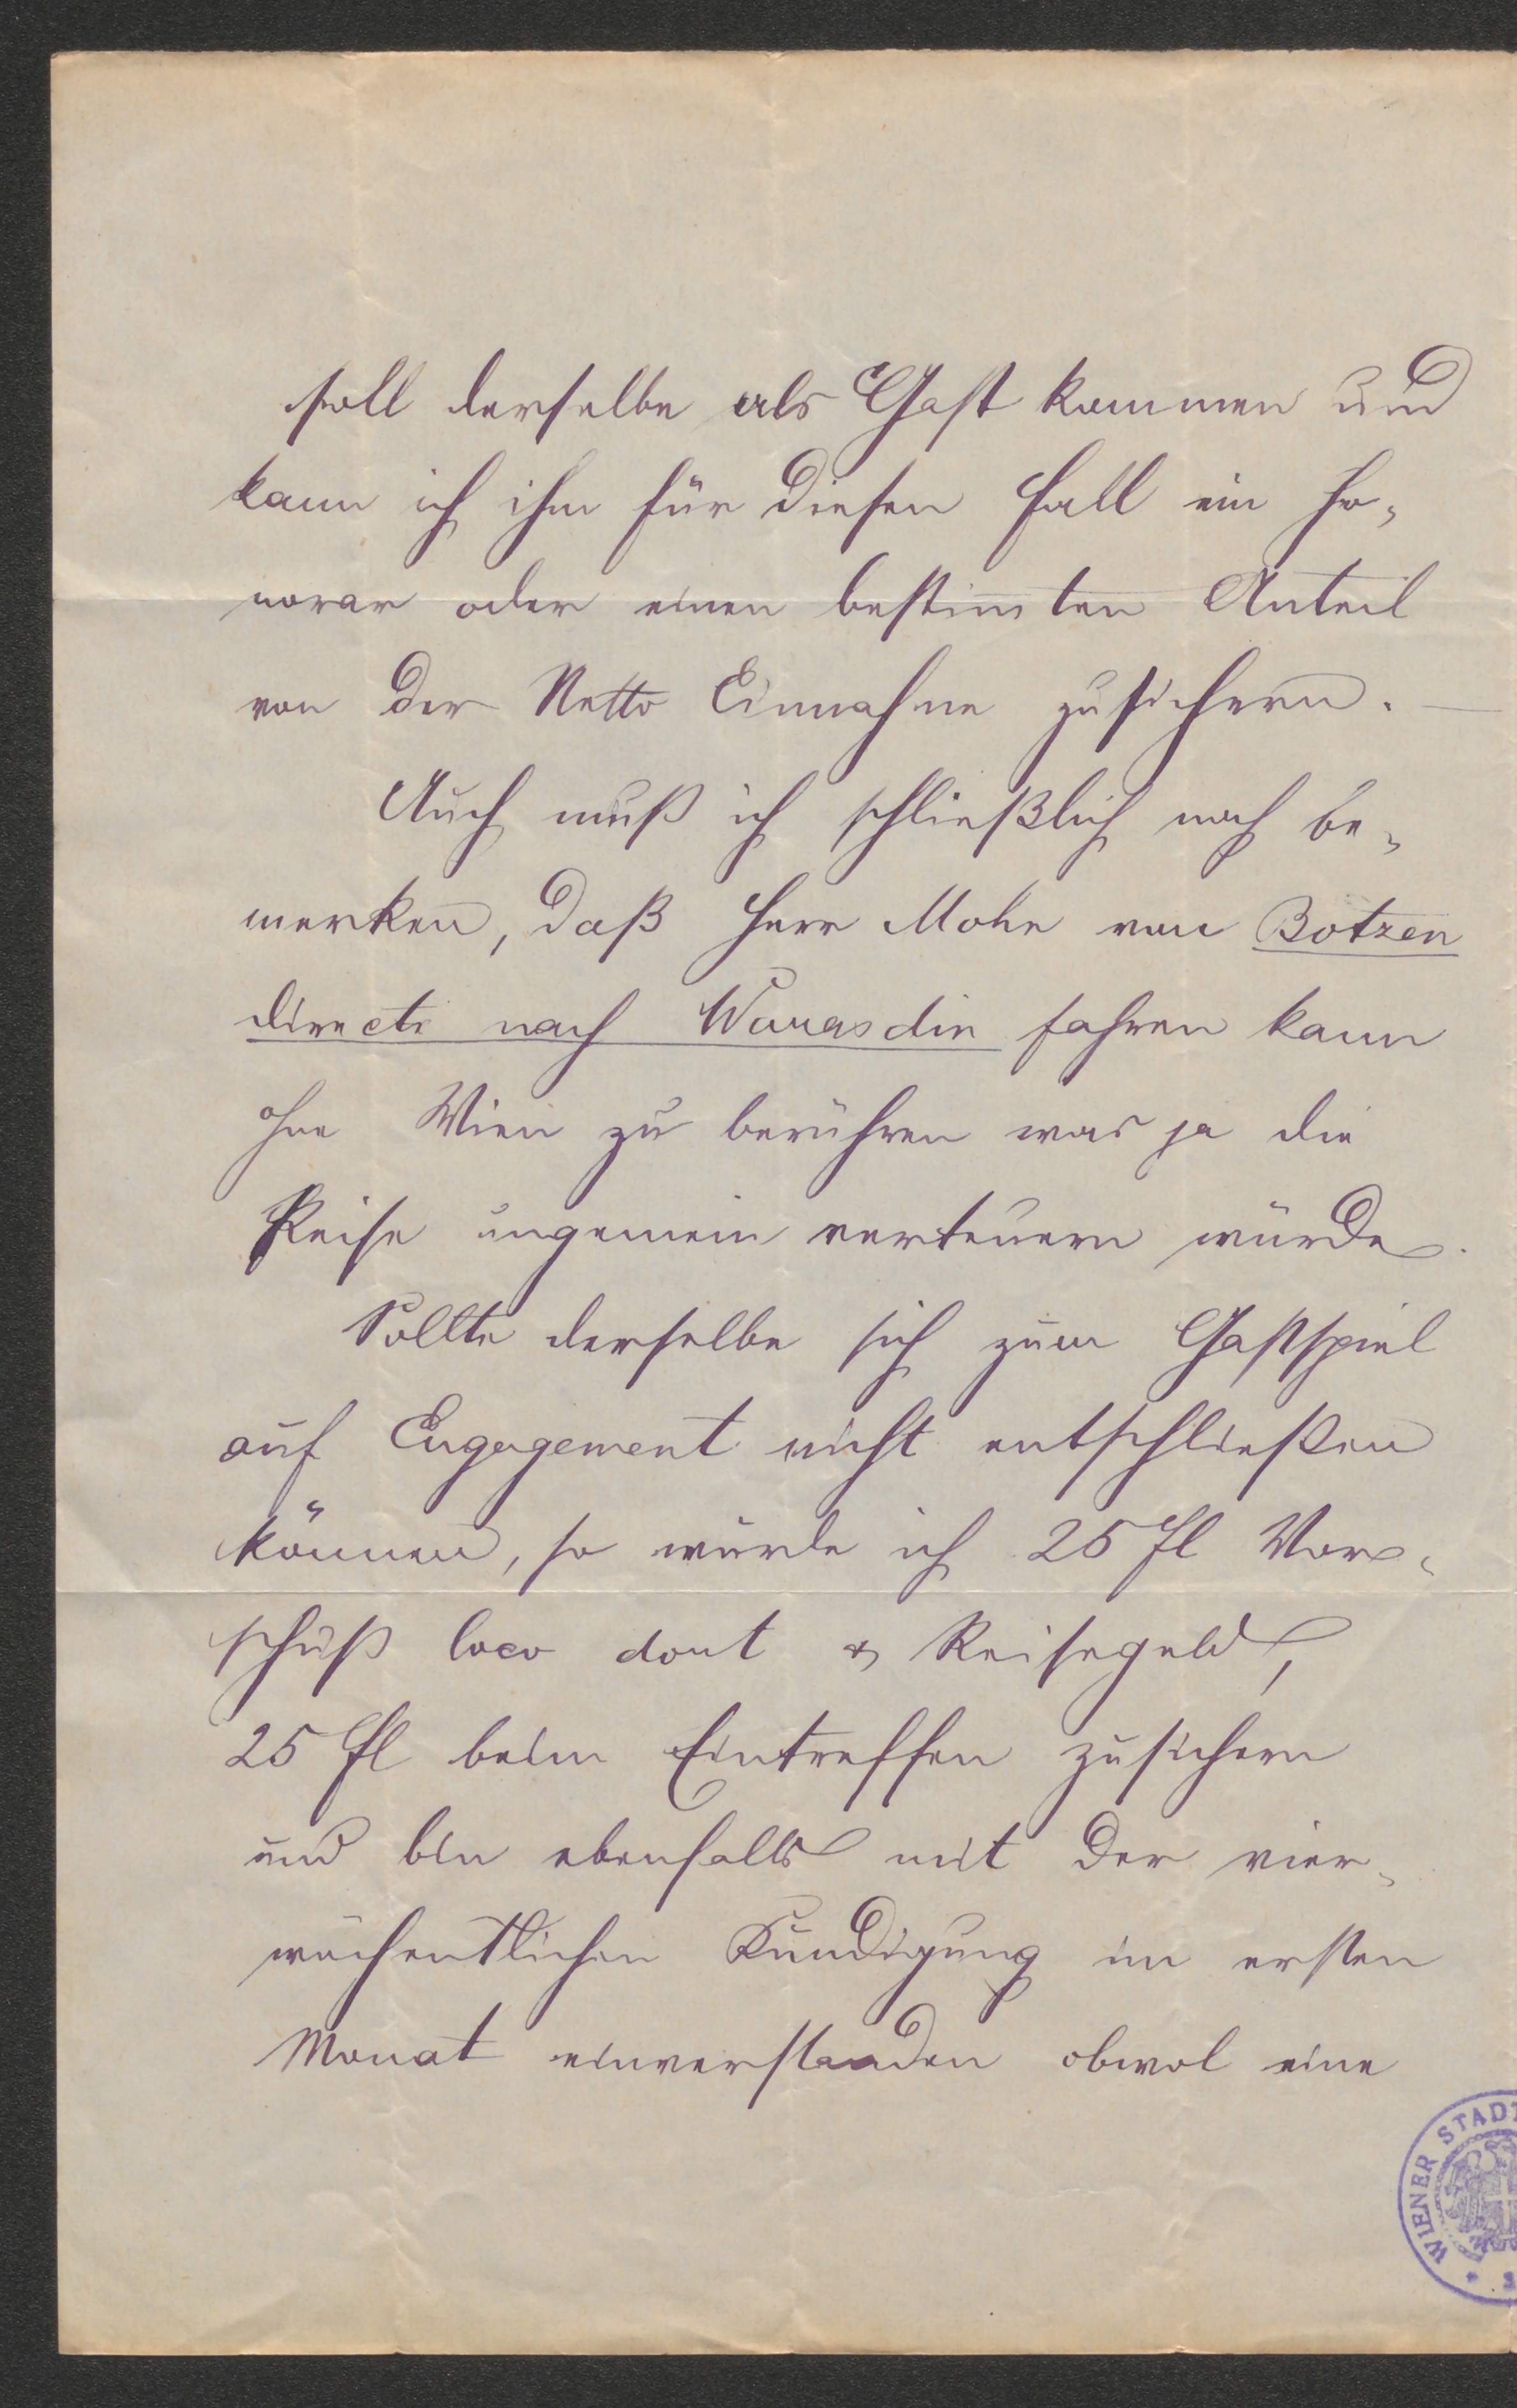 soll derselbe als Gast kommen und
kann ich ihm für diesen Fall ein Ho-
norar oder einen bestimten Anteil
von der Netto Einnahme zusichern. —
Auch muß ich schließlich noch be-
merken, daß Herr Mohr von Botzen
directe nach Warasdin fahren kann
ohne Wien zu berühren was ja die
Reise ungemein verteuern würde.
Sollte derselbe sich zum Gastspiel
auf Engagement nicht entschließen
können, so würde ich 25 fl Vor-
schuß loco dort & Reisegeld,
25 fl beim Eintreffen zusichern
und bin ebenfalls mit der vier-
wöchentlichen Kündigung im ersten
Monat einverstanden obwol eine
WIENER STADT